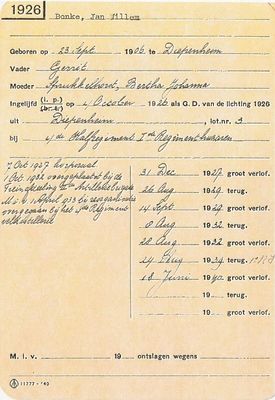 1926
Bonke, Jan Willem
Geboren op 23 Sept 1906 te Diepenheim
Vader Gerrit
Moeder Sprukkelhorst, Bertha Johanna
Ingelijfd (i. p.) op 4 October 1926 als G.D. van de lichting 1926
uit Diepenheim, lot.nr. 3
bij 4de Halfregiment Iste Regiment huzaren
7 Oct 1927 korporaal
1 Oct. 1932 overgeplaatst bij de
Treinafdeeling Artilleriebrigade
M.i.v. 1 April 1933 bij reorganisatie
overgegaan bij het Regiment
veldartillerie
31 Dec 1927 groot verlof.
26 Aug 1929 terug.
14 Sept 1929 groot verlof.
8 Aug 1932 terug.
20 Aug 1932 groot verlof.
24 Aug 1939 terug.
18 Juni 1940 groot verlof.
19 terug.
19 groot verlof.
19 terug.
19 groot verlof.
M. i. v. 19 ontslagen wegens
11777 - '40